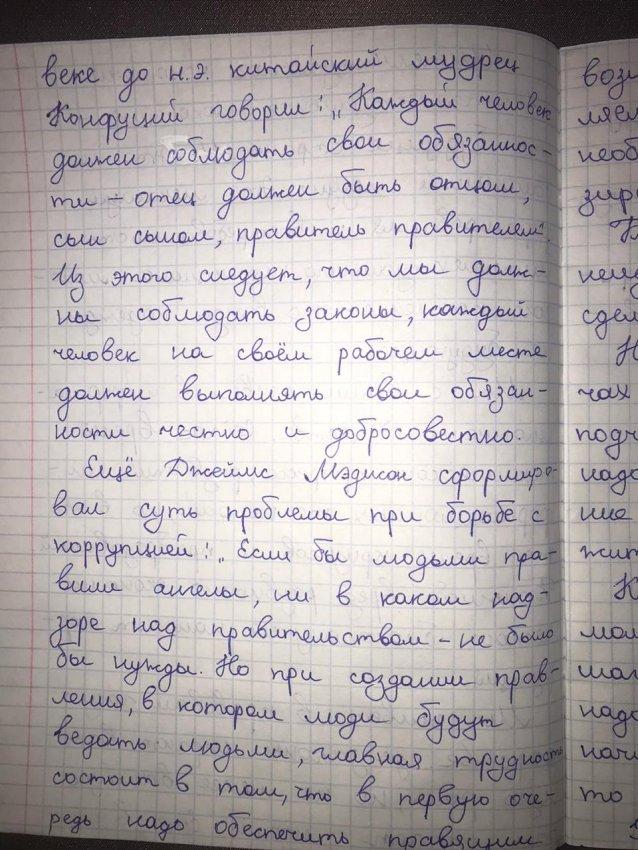 веке до н.э. китайский мудрец
Конфуций говорил: „Каждый человек
должен соблюдать свои обязаннос-
ти - отец должен быть отцом,
сын сыном, правитель правителем".
Из этого следует, что мы долж-
ны соблюдать законы, каждый
человек на своём рабочем месте
должен выполнять свои обязан-
ности честно и добросовестно.
Ещё Джеймс Мэдисон сформиро-
вал суть проблемы при борьбе с
коррупцией: „Если бы людьми пра-
вили ангелы, ни в каком над-
зоре над правительством - не было
бы нужды. Но при создании прав-
ления, в котором люди будут
ведать людьми, главная трудность
состоит в том, что в первую оче-
редь надо обеспечить правящим
вози
ляем
необ
зир
неиз
сдел
чах
подч
надо
ние
жит
мол
шаг
надо
начи
то